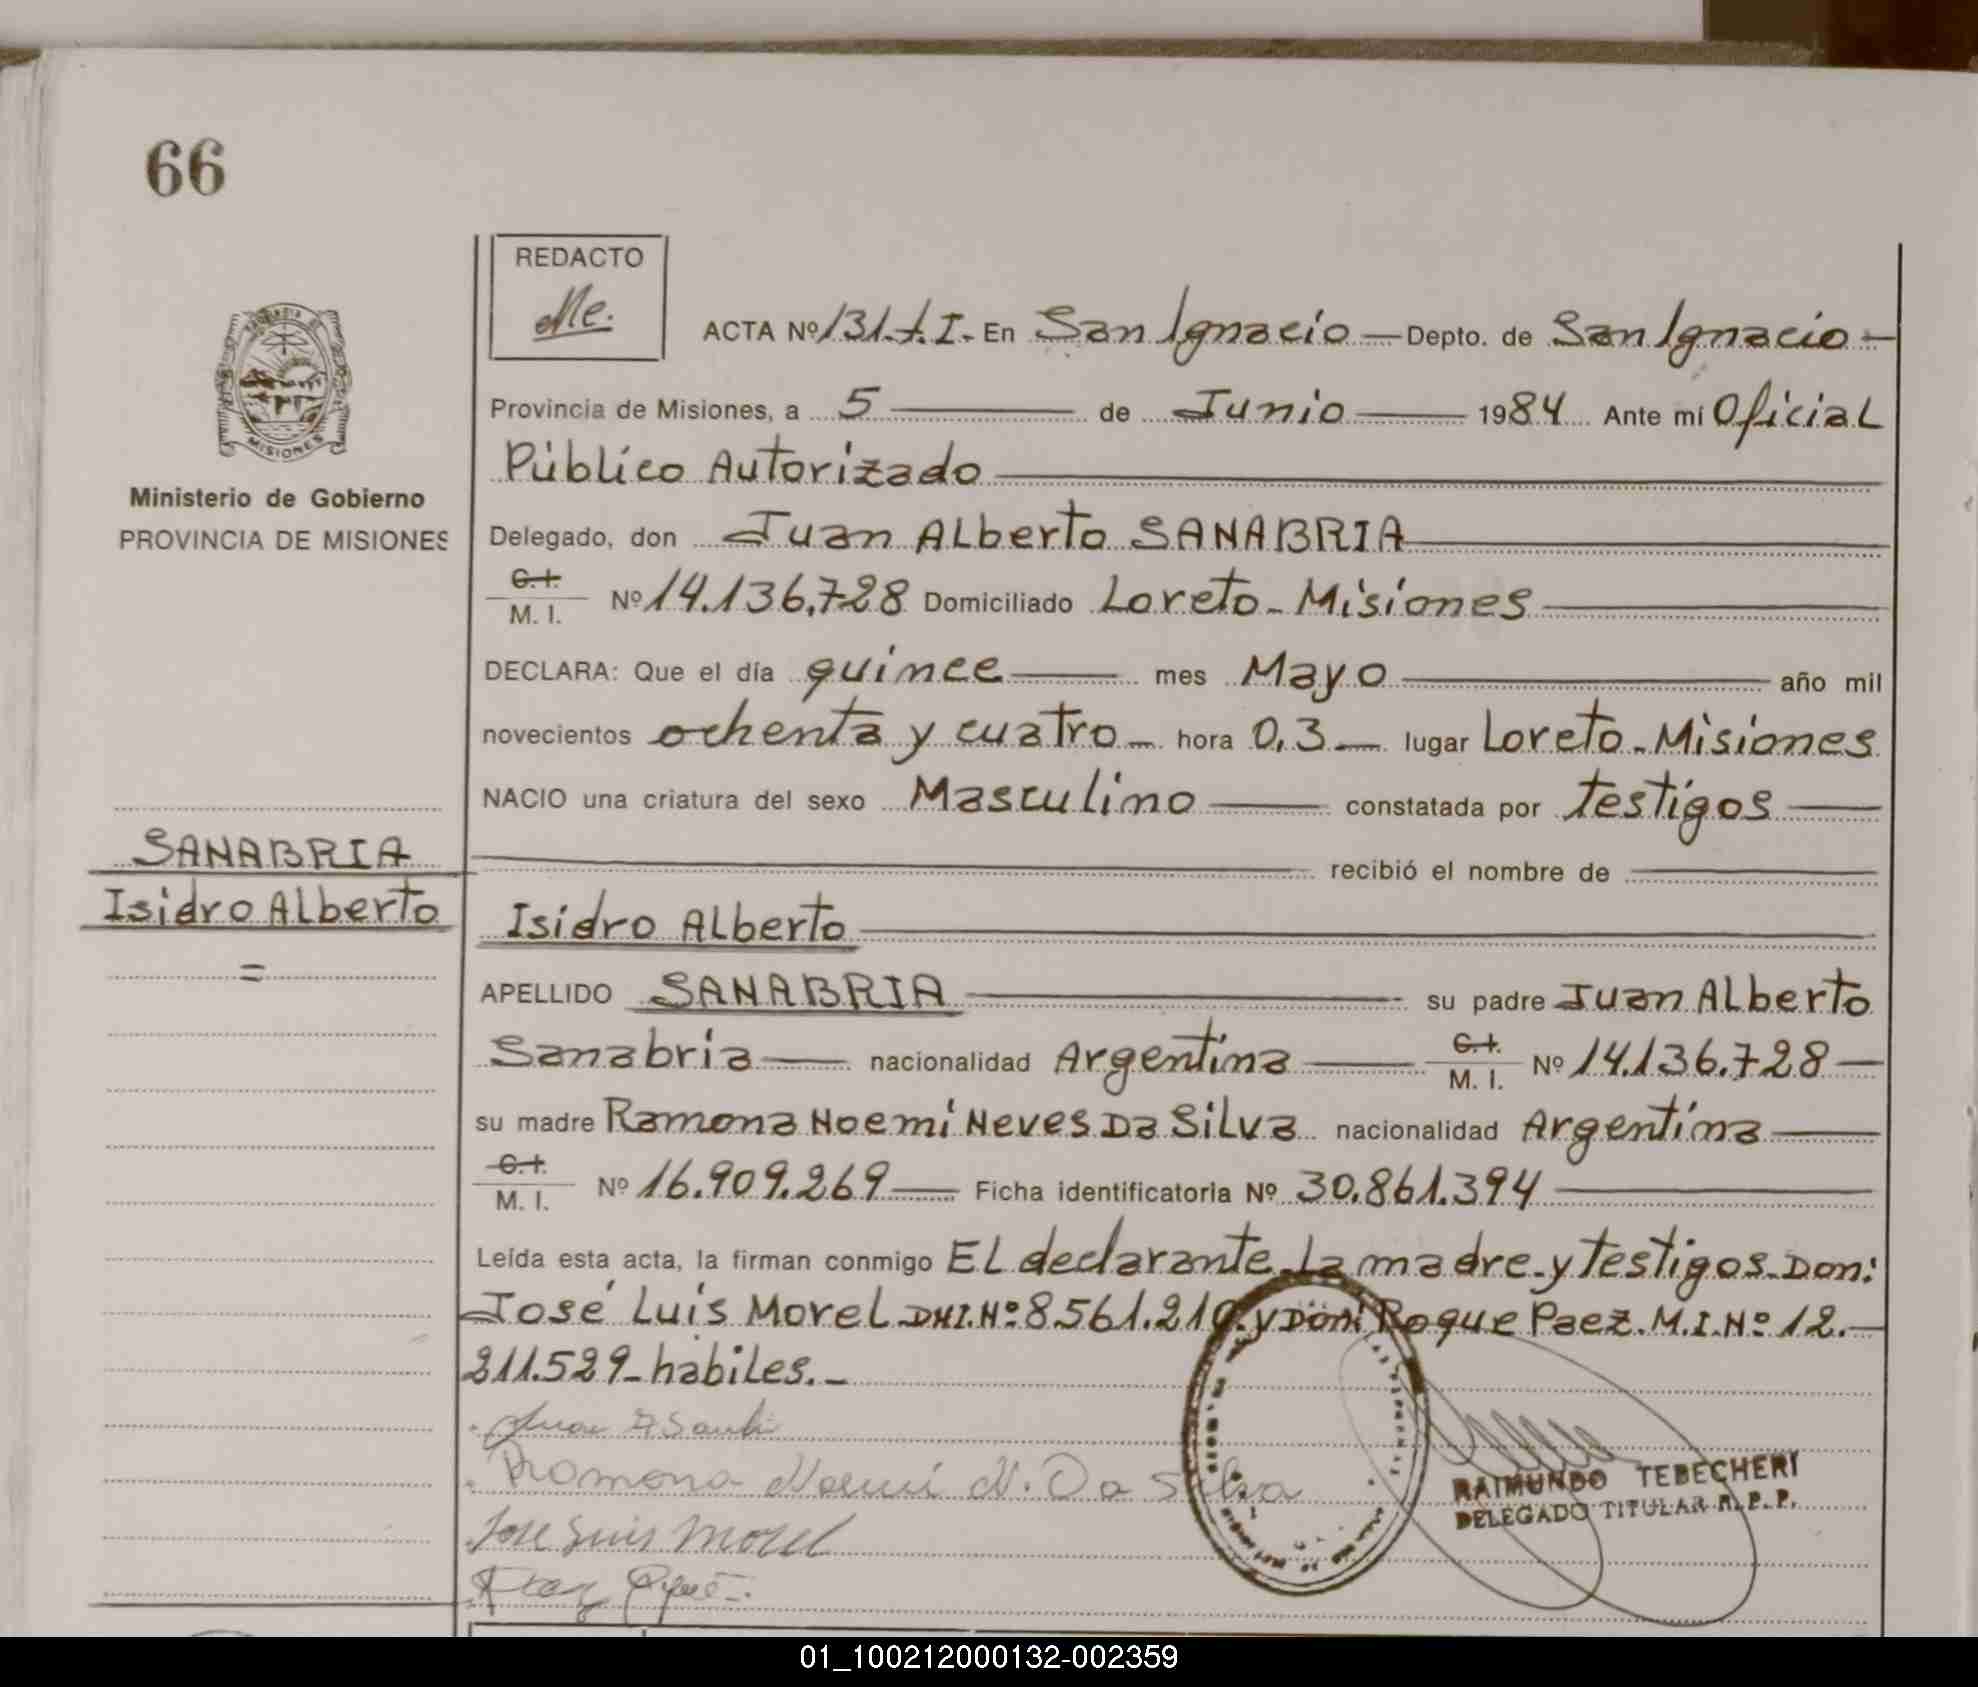 66
REDACTO
Me.
ACTA Nº 131.t.I. En San Ignacio — Depto. de San Ignacio —
Provincia de Misiones, a 5 — de Junio — 1984 Ante mí Oficial
Público Autorizado
Ministerio de Gobierno
PROVINCIA DE MISIONES
Delegado, don Juan Alberto SANABRIA
C.I.
M. I. Nº 14.136.728 Domiciliado Loreto - Misiones
DECLARA: Que el día quince — mes Mayo — año mil
novecientos ochenta y cuatro — hora 0,3 — lugar Loreto - Misiones
NACIO una criatura del sexo Masculino — constatada por testigos —
SANABRIA
Isidro Alberto
=
recibió el nombre de
Isidro Alberto
APELLIDO SANABRIA — su padre Juan Alberto
Sanabria — nacionalidad Argentina — C.I. M. I. Nº 14.136.728 —
su madre Ramona Noemí Neves Da Silva nacionalidad Argentina —
C.I.
M. I. Nº 16.909.269 — Ficha identificatoria Nº 30.861.394 —
Leída esta acta, la firman conmigo El declarante - La madre - y testigos - Don:
José Luis Morel DNI. Nº 8.561.210. y Don: Roque Paez. M.I. Nº 12.—
211.529 - habiles. -
Juan A Sanb
Ramona Noemi N. Da Silva
Jose Luis Morel
RAIMUNDO TEBECHERI
DELEGADO TITULAR R. P. P.
MISIONES
01_100212000132-002359